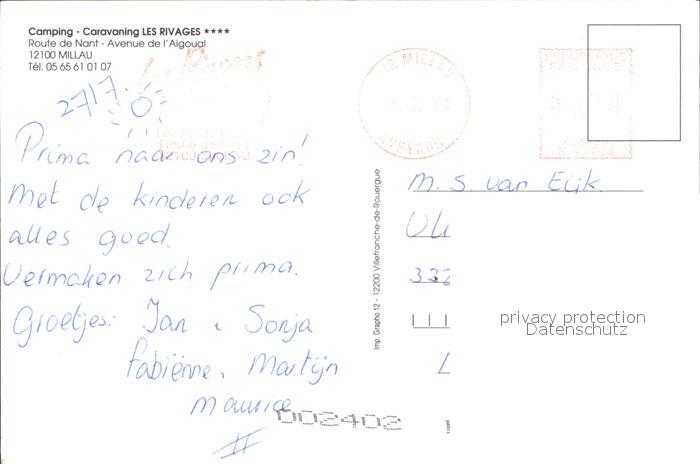 Camping - Caravaning LES RIVAGES ★★★★
Route de Nant - Avenue de l'Aigoual
12100 MILLAU
Tél. 05 65 61 01 07
27/7.
Prima naar ons zin!
Met de kinderen ook
alles goed.
Vermaken zich prima.
Groetjes: Jan & Sonja
Fabiënne, Martijn
Maurice
002402
12 MILLAU
AVEYRON
Imp. Grapho 12 - 12200 Villefranche-de-Rouergue
M. S van Eijk.
privacy protection
Datenschutz